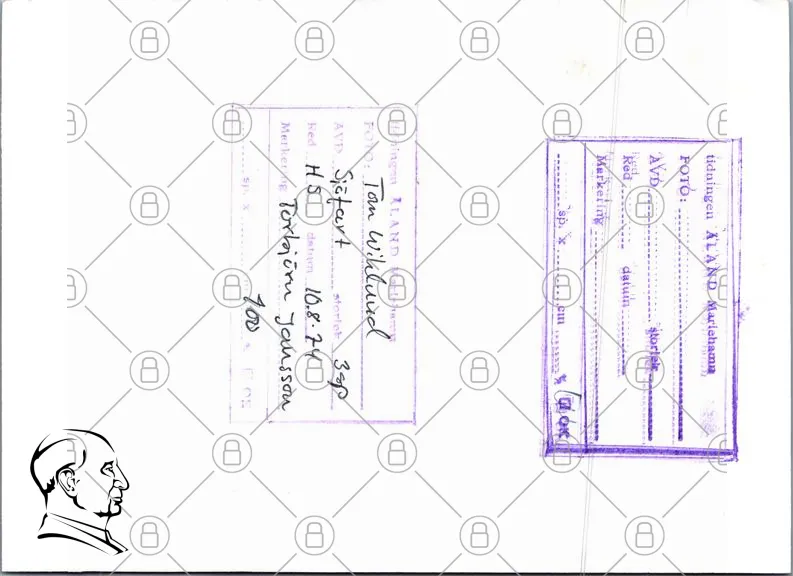 tidningen ÅLAND Mariehamn
FOTO: Tom Wiklund
AVD Sjöfart storlek 3sp
Red HS datum 10.8.74
Markering Torbjörn Jansson
sp. x 100 %
tidningen ÅLAND Mariehamn
FOTO:
AVD storlek
Red datum
Markering
sp. x cm % OK